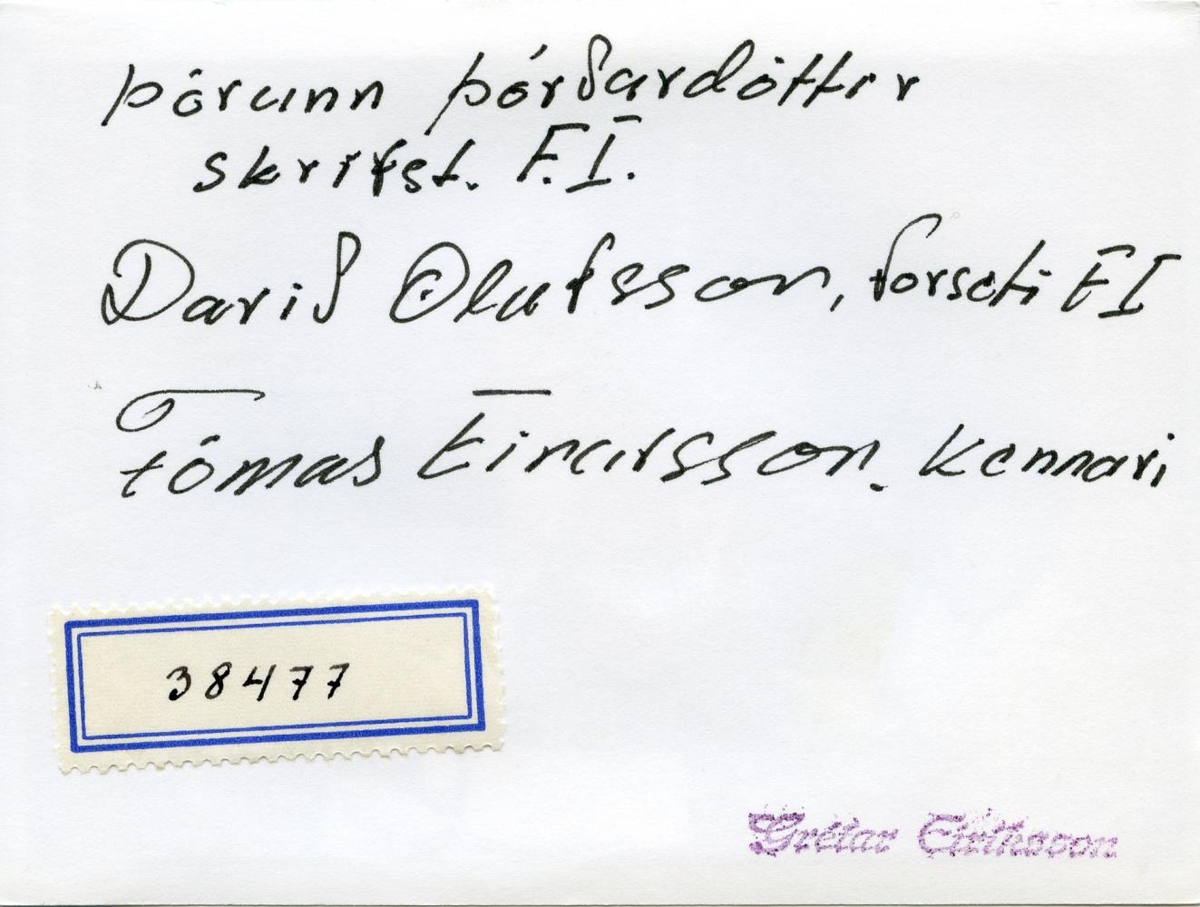 Þórunn Þórðardóttir
skrifst. F.Í.
Davið Olafsson, forseti FI
Tómas Einarsson. Kennari
38477
Grétar Eiríksson